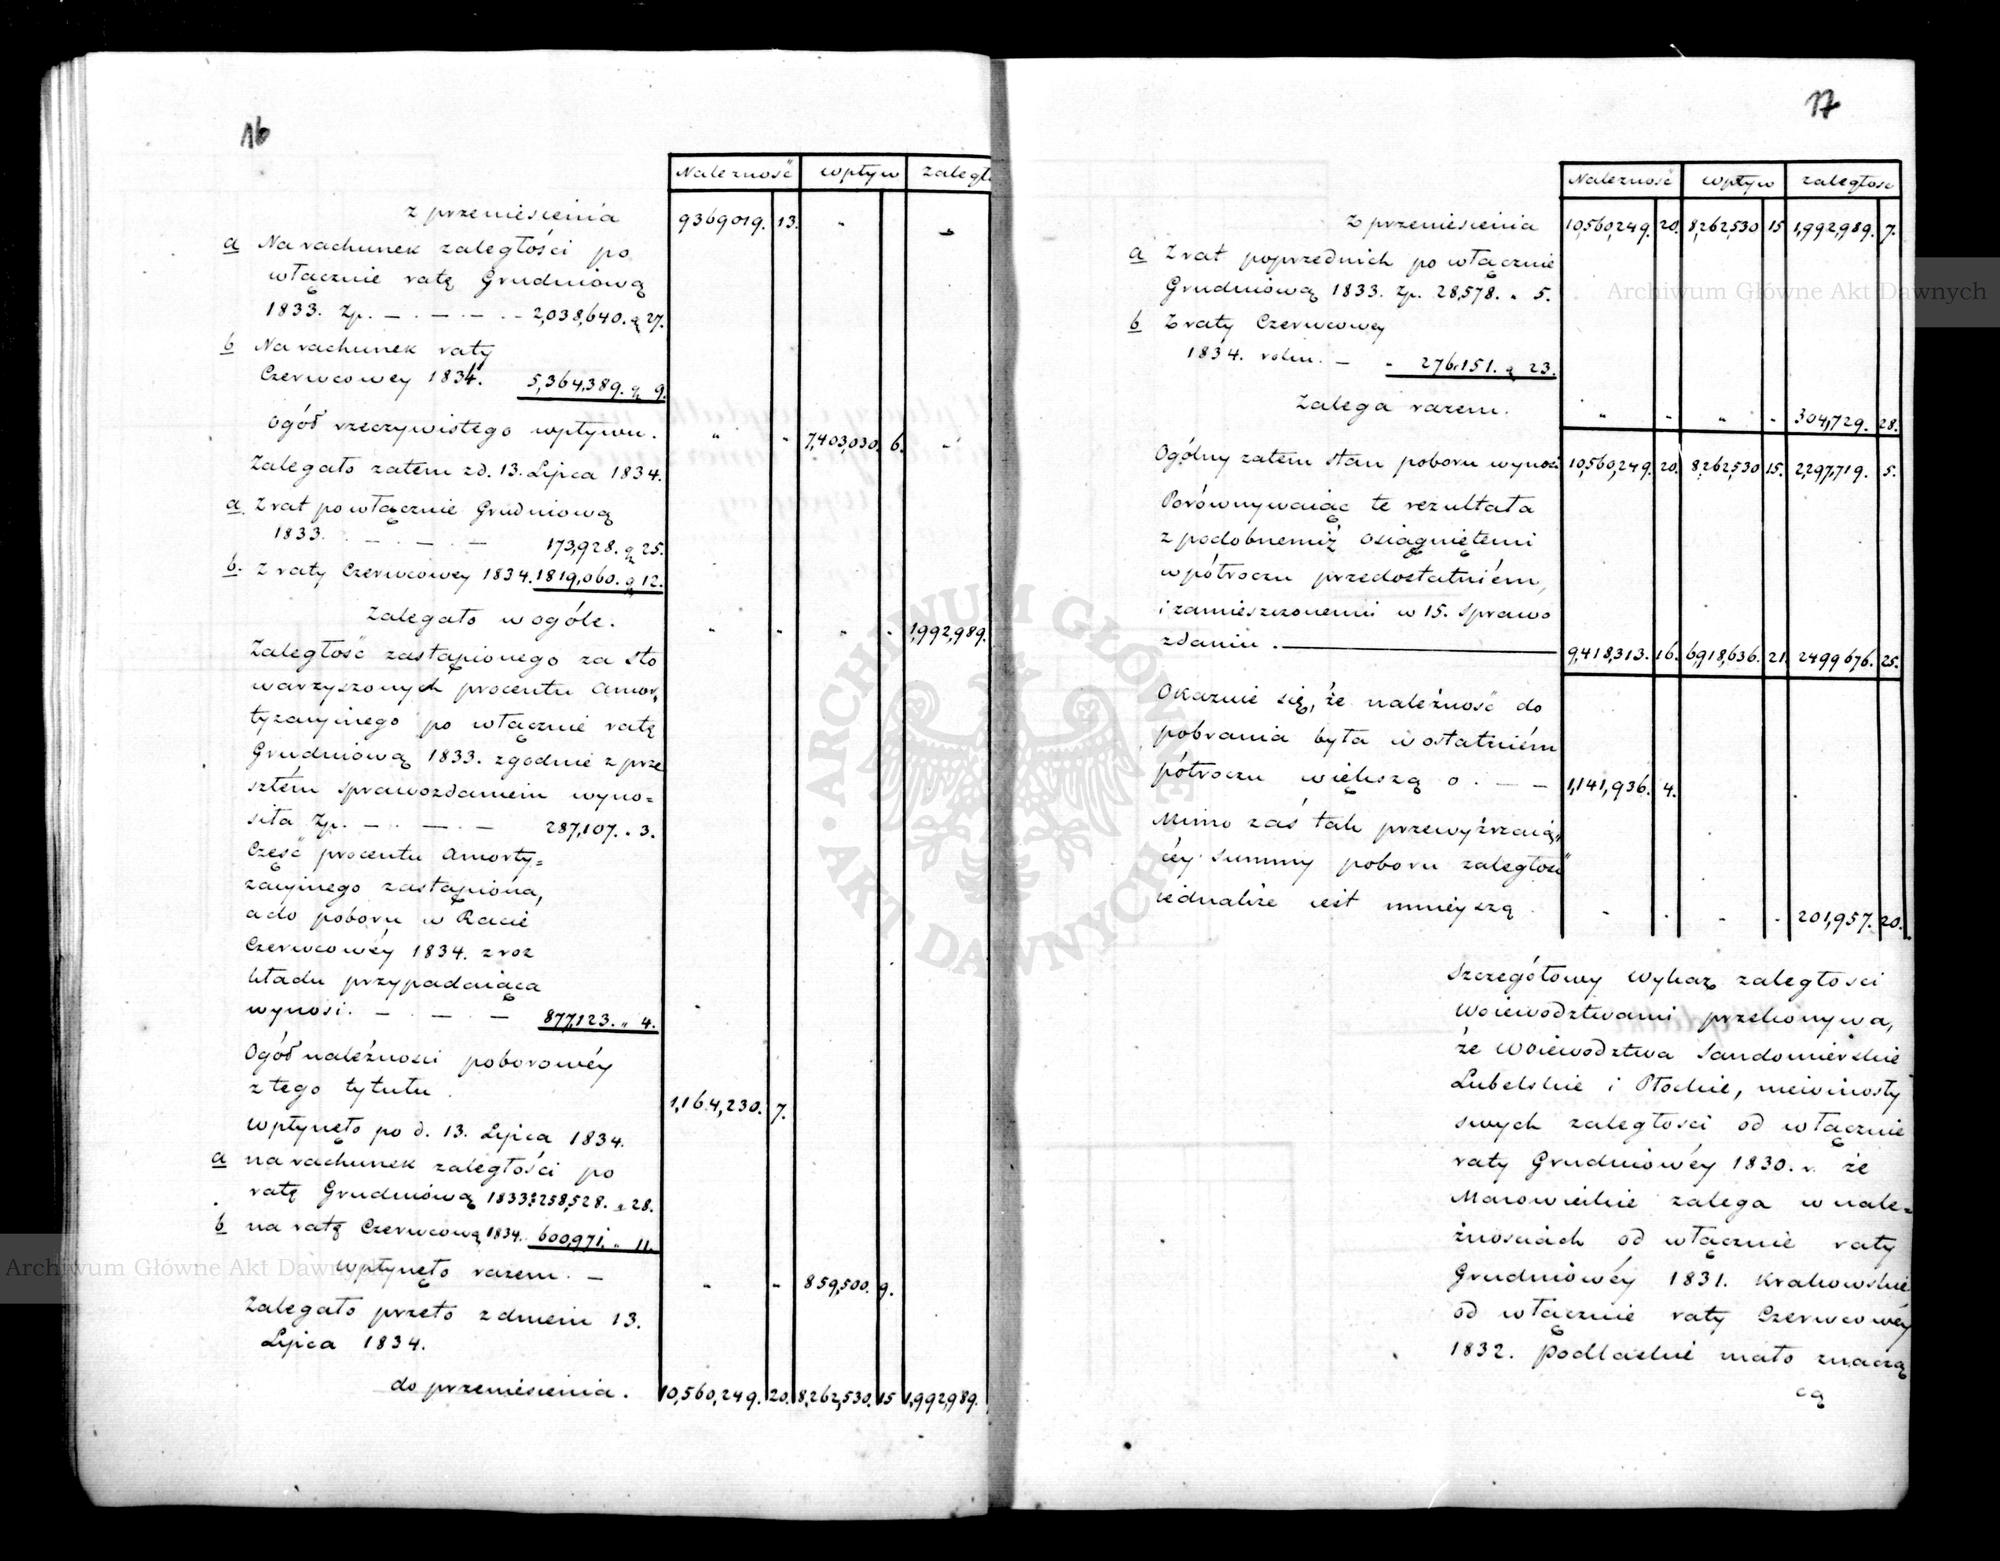 16
Należność wpływ zaległ
z przeniesienia 9369019. 13. " "
a Na rachunek zaległości po
włącznie ratę Grudniową
1833. Zp. — . — . — . - 2,038,640. g 27.
b Na rachunek raty
Czerwcowey 1834. 5,364,389. g 9.
Ogół rzeczywistego wpływu. " " 7,403,030. 6. "
Zalegało zatem zd. 13. Lipca 1834.
a. Z rat po włącznie Grudniową
1833. — . — 173,928. g 25.
b. z raty Czerwcowey 1834. 1819,060. g 12.
Zalegało w ogóle. " " " " 1,992,989.
Zaległość zastąpionego za sto
warzyszonych procentu amor,
tyzacyinego po włącznie ratę
Grudniową 1833. zgodnie z prze
szłém sprawozdaniem wyno=
siła Zp. — . — . — 287,107. " 3.
Część procentu Amorty=
zacyinego zastąpiona,
a do poboru w Racie
Czerwcowéy 1834. z roz
kładu przypadaiąca
wynosi. — . — . — 877,123. " 4.
Ogół należności poborowéy
z tego tytułu . 1,164,230. 7.
Wpłynęło po d. 13. Lipca 1834.
a na rachunek zaległości po
ratę Grudniową 1833: 258,528. " 28.
b na ratę Czerwcową 1834. 600,971. " 11.
Wpłynęło razem. — " " 859,500. 9.
Zalegało przeto z dniem 13.
Lipca 1834.
do przeniesienia. 10,560,249. 20. 8,262,530. 15 1,992,989.
17
Należność wpływ zaległość
Z przeniesienia 10,560,249. 20. 8,262,530 15 1,992,989. 7.
a Z rat poprzednich po włącznie
Grudniową 1833. Zp. 28,578. " 5.
b Z raty Czerwcowey
1834. roku. — " 276,151. g 23.
Zalega razem. " " " " 304,729. 28.
Ogólny zatem stan poboru wynosi 10,560,249. 20. 8,262,530 15. 2,297,719. 5.
Porównywaiąc te rezultata
z podobnemiż osiągniętemi
w półroczu przedostatniém,
i zamieszczonemi w 15. sprawo
zdaniu . — 9,418,313. 16. 6,918,636. 21. 2499676. 25.
Okazuie się, że należność do
pobrania była w ostatniém
półroczu większą o . — — 1,141,936. 4.
Mimo zaś tak przewyższaią,
céy summy poboru zaległość
iednakże iest mnieyszą . " " " " 201,957. 20.
Szczegółowy Wykaz zaległości
Woiewództwami przekonywa,
że Woiewództwa Sandomierskie
Lubelskie i Płockie, niewiniosły
swych zaległości od włącznie
raty Grudniowéy 1830. r. że
Mazowieckie zalega w nale=
żnościach od włącznie raty
Grudniowéy 1831. Krakowskie
od włącznie raty Czerwcowéy
1832. Podlaskie mało znaczą
cą
Archiwum Główne Akt Dawnych
Archiwum Główne Akt Dawnych
ARCHIWUM GŁÓWNE AKT DAWNYCH